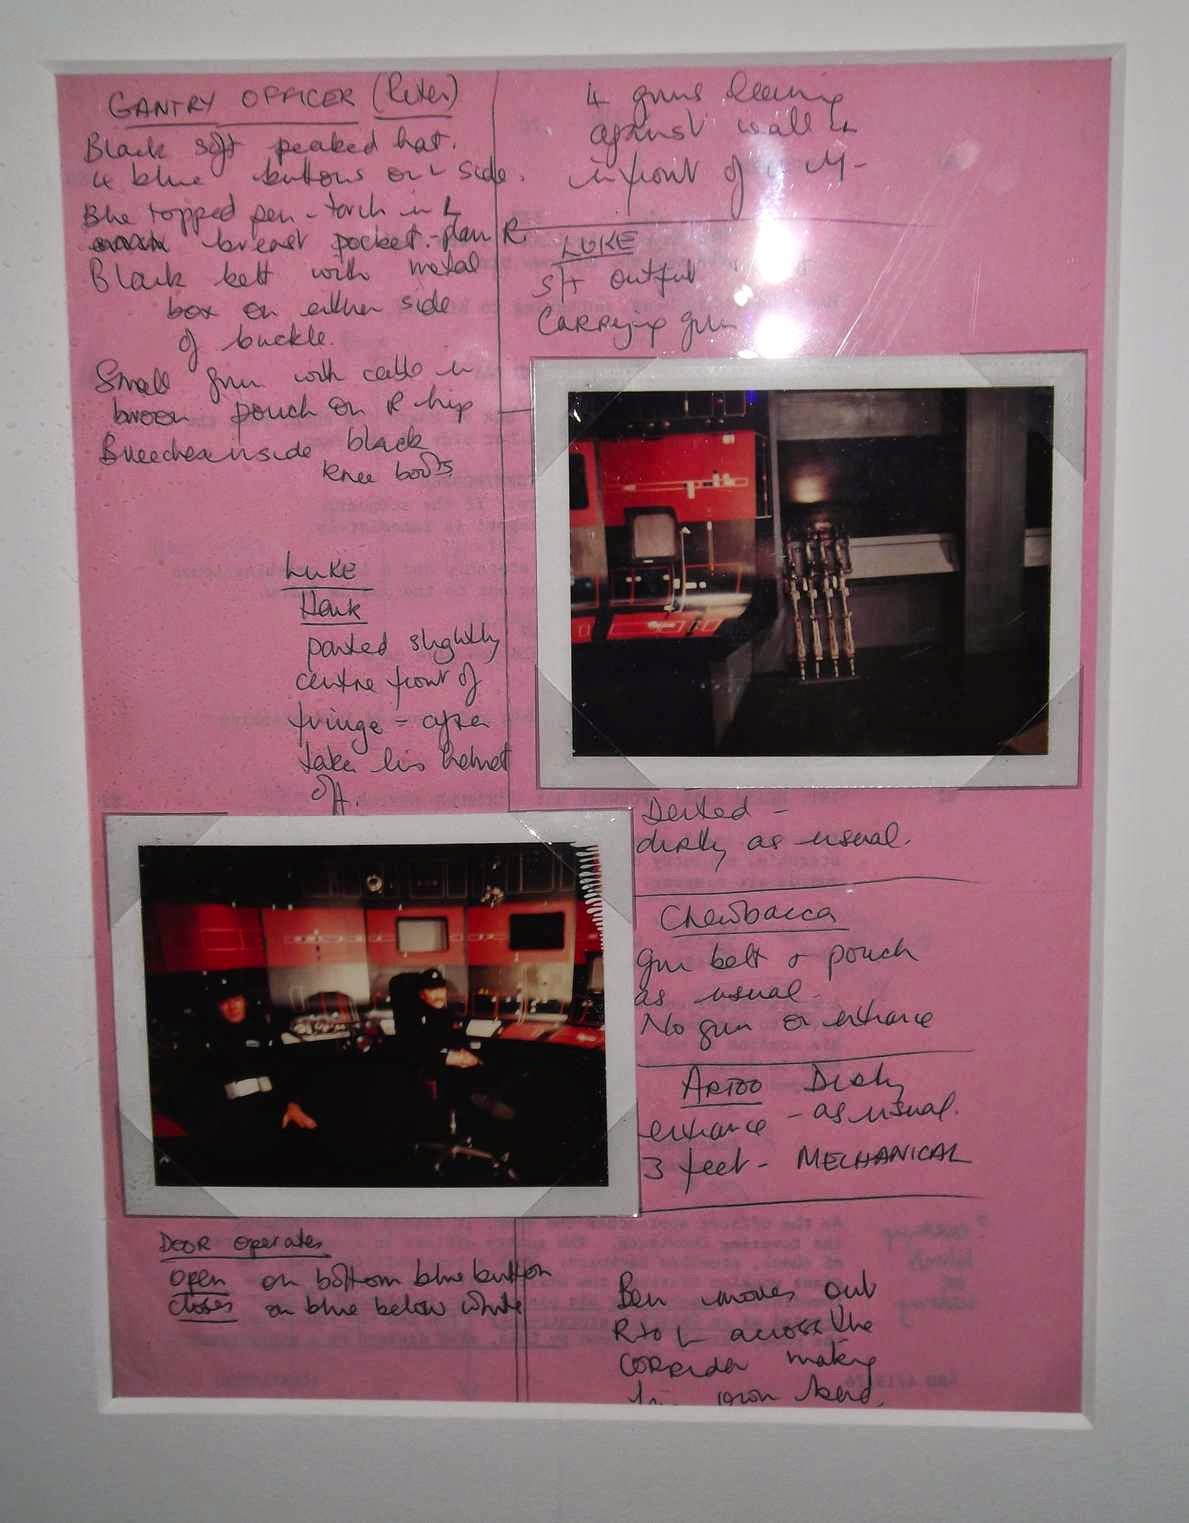 GANTRY OFFICER (Peter)
Black soft peaked hat.
4 blue buttons on L side.
Blue topped pen-torch in L
breast pocket. - pen R.
Black belt with metal
box on either side
of buckle.
Small gun with cable in
brown pouch on R hip
Breeches inside black
knee boots
LUKE
Hair
parted slightly
centre front of
fringe - after
takes his helmet
off.
DOOR operates
open on bottom blue button
closes on blue below white
4 guns leaning
against wall in
in front of
LUKE
S/T outfit
Carrying gun
Dented -
dirty as usual.
Chewbacca
gun belt & pouch
as usual.
No gun on entrance
ARTOO Dirty
entrance - as usual.
3 feet - MECHANICAL
Ben moves out
R to L across the
corridor making